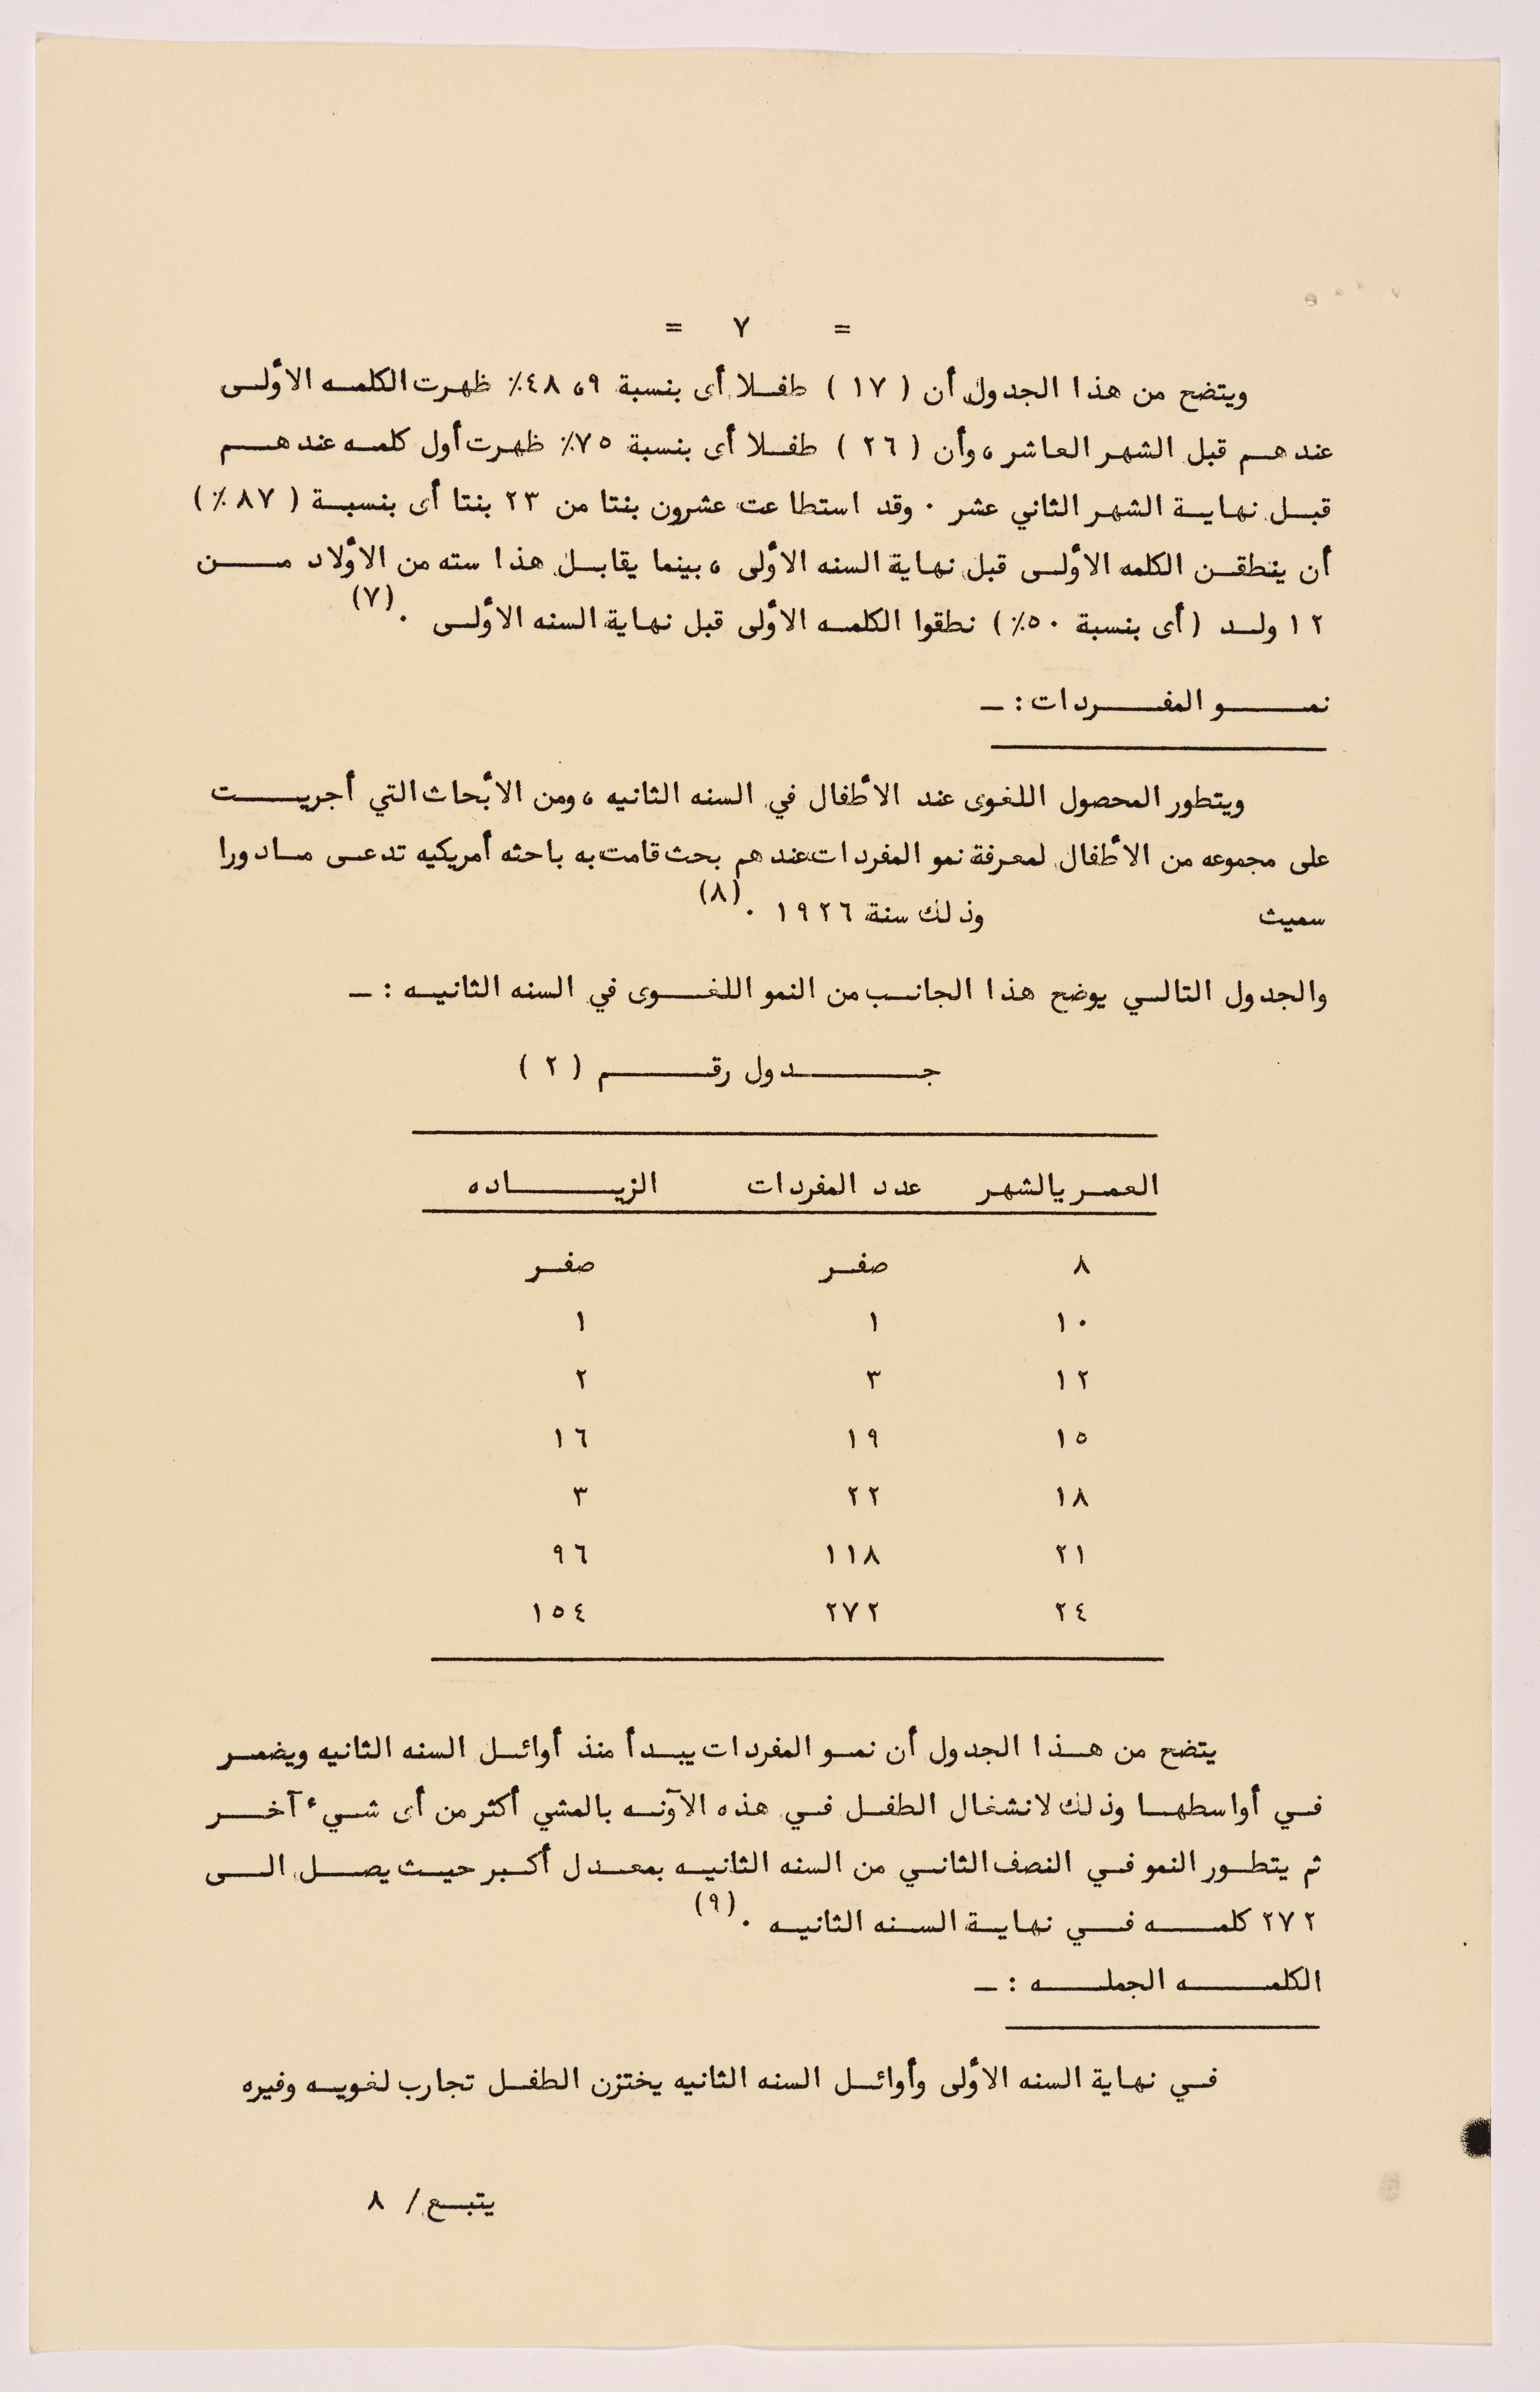 = ٧ =
ويتضح من هذا الجدول أن ( ١٧ ) طفلا أى بنسبة ٩،٤٨٪ ظهرت الكلمه الأولى
عندهم قبل الشهر العاشر، وأن ( ٢٦ ) طفلا أى بنسبة ٧٥٪ ظهرت أول كلمه عندهم
قبل نهاية الشهر الثاني عشر ٠ وقد استطاعت عشرون بنتا من ٢٣ بنتا أى بنسبة ( ٨٧ ٪)
أن ينطقن الكلمه الأولى قبل نهاية السنه الأولى ، بينما يقابل هذا سته من الأولاد من
١٢ ولد (أى بنسبة ٥٠٪) نطقوا الكلمه الأولى قبل نهاية السنه الأولى .(٧)
نمو المفردات : -
ويتطور المحصول اللغوى عند الأطفال في السنه الثانيه ، ومن الأبحاث التي أجريت
على مجموعه من الأطفال لمعرفة نمو المفردات عندهم بحث قامت به باحثه أمريكيه تدعى مادورا
سميث وذلك سنة ١٩٢٦ .(٨)
والجدول التالي يوضح هذا الجانب من النمو اللغوى في السنه الثانيه : -
جدول رقم ( ٢ )
العمر بالشهر عدد المفردات الزياده
٨ صفر صفر
١٠ ١ ١
١٢ ٣ ٢
١٥ ١٩ ١٦
١٨ ٢٢ ٣
٢١ ١١٨ ٩٦
٢٤ ٢٧٢ ١٥٤
يتضح من هذا الجدول أن نمو المفردات يبدأ منذ أوائل السنه الثانيه ويضمر
في أواسطها وذلك لانشغال الطفل في هذه الآونه بالمشي أكثر من أى شيء آخر
ثم يتطور النمو في النصف الثاني من السنه الثانيه بمعدل أكبر حيث يصل الى
٢٧٢ كلمه في نهاية السنه الثانيه .(٩)
الكلمه الجمله : -
في نهاية السنه الأولى وأوائل السنه الثانيه يختزن الطفل تجارب لغويه وفيره
يتبع / ٨